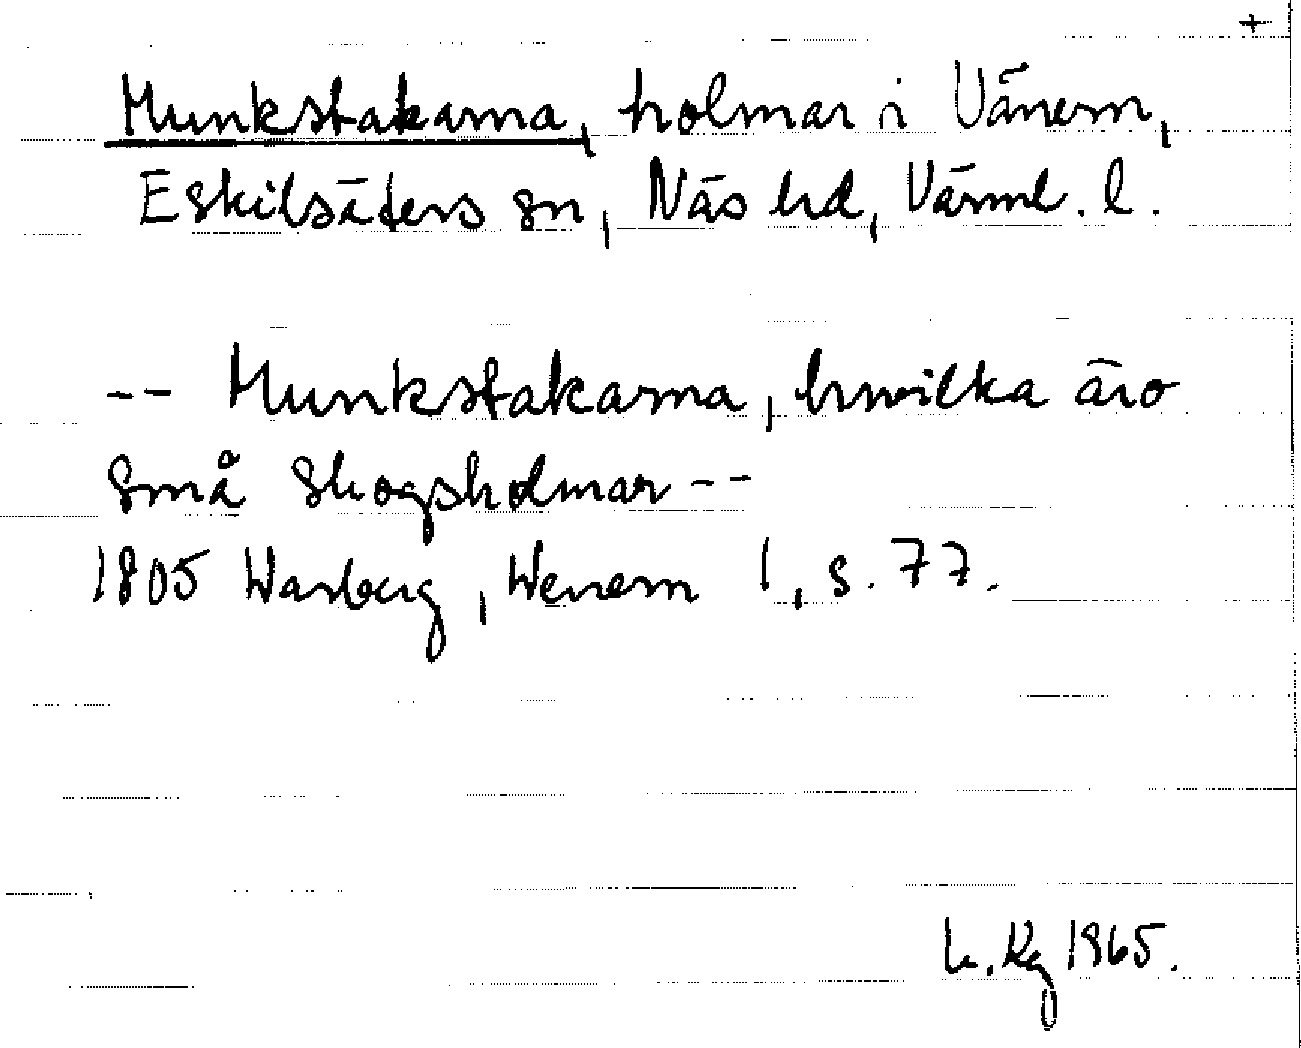 +
Munkstakarna, holmar i Vänern,
Eskilsäters sn, Näs hd, Värml. l.
-- Munkstakarna, hwilka äro
små skogsholmar --
1805 Warberg, Wenern 1, s. 77.
L. Rg 1965.